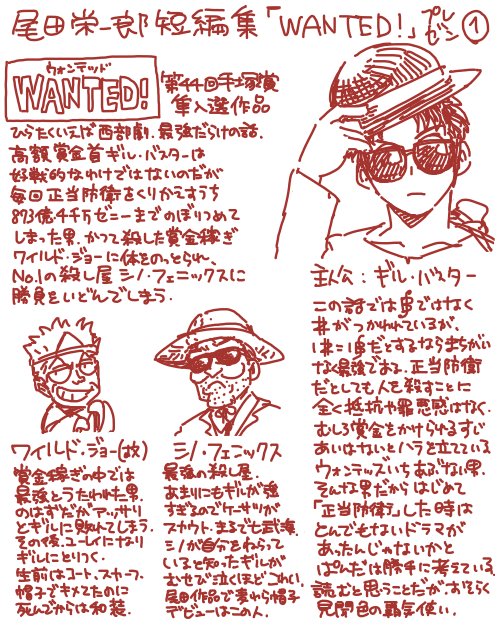 尾田栄一郎短編集「WANTED!」プレゼン①
ウォンテッド
WANTED!
第44回手塚賞
準入選作品
ひらたくいえば西部劇.最強だらけの話.
高額賞金首ギル・バスターは
好戦的なわけではないのだが
毎回正当防衛をくりかえすうち
873億4千万ゼニーまでのぼりつめて
しまった男.かつて殺した賞金稼ぎ
ワイルド・ジョーに体をのっとられ、
No.1の殺し屋シノ・フェニックスに
勝負をいどんでしまう.
主人公:ギル・バスター
この話では฿ではなく
#がつかわれているが、
1#=1฿だとするならまちがい
なく最強である.正当防衛
だとしても人を殺すことに
全く抵抗や罪悪感はなく、
むしろ賞金をかけられるすじ
あいはないとハラを立てている
ウォンテッズいちあぶない男.
そんな男だからはじめて
「正当防衛」した時は
とんでもないドラマが
あったんじゃないかと
ぱんだは勝手に考えている.
読むと思うことだが、おそらく
見聞色の覇気使い.
ワイルド・ジョー(故)
賞金稼ぎの中では
最強とうたわれた男.
のはずだがアッサリ
とギルに敗れてしまう.
その後、ユーレイになり
ギルにとりつく.
生前はコート、スカーフ、
帽子でキメてたのに
死んでからは和装.
シノ・フェニックス
最強の殺し屋.
あまりにもギルが強
すぎるのでケーサツが
スカウト.まるで七武海.
シノが自分をねらって
いると知ったギルが
むせび泣くほどこわい.
尾田作品で麦わら帽子
デビューはこの人.